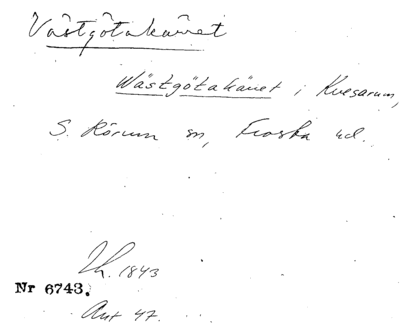 Västgötakäret
Wästgötakäret i Kvesarum,
S. Rörum sn, Frosta hd.
Th. 1843
Nr 6743.
Ant 47.